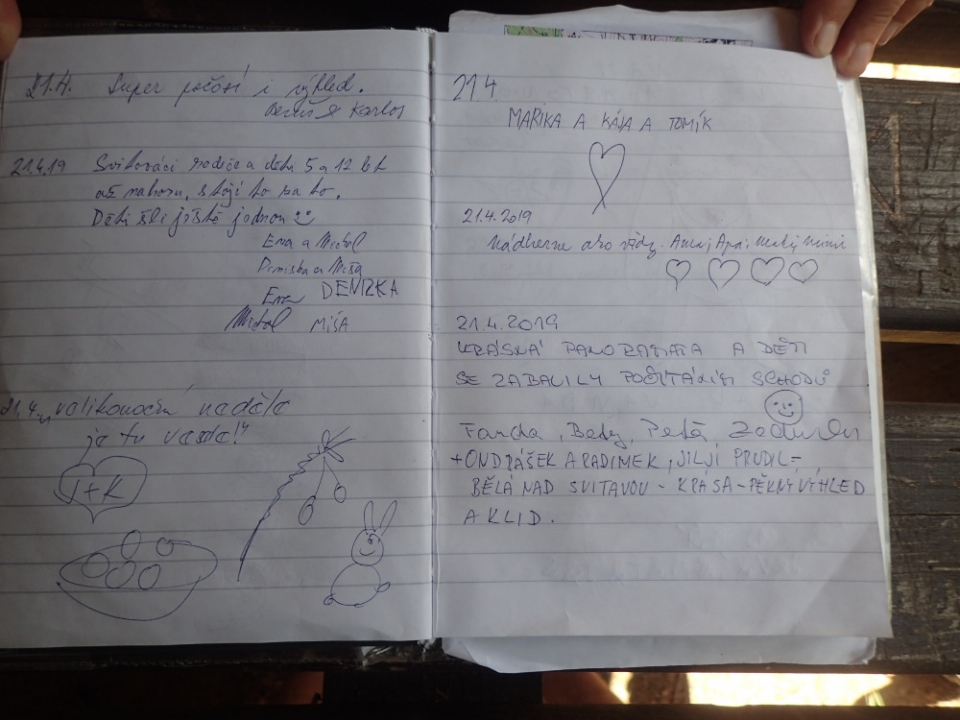 21.4. Super počasí i výhled.
Karlos
21.4.19 Svitováci rodiče a děti 5 a 12 let
až nahoru, stojí to za to.
Děti šli ještě jednou
Ema a Michal
Deniska a Míša
Ema DENIZKA
Michal MÍŠA
21.4. velikonoční neděle
je tu veselá
J+K
21.4.
MAŘKA A KÁJA A TOMÍK
21.4.2019
Nádherne ako vždy.
21.4.2019
KRÁSNÁ PANORAMATA A DĚTI
SE ZABAVILY POČÍTÁNÍM SCHODŮ
Fanda, Bety, Peťa,
+ONDRÁŠEK A RADIMEK, JILJÍ PRUDIL-
BĚLÁ NAD SVITAVOU - KRÁSA - PĚKNÝ VÝHLED
A KLID.